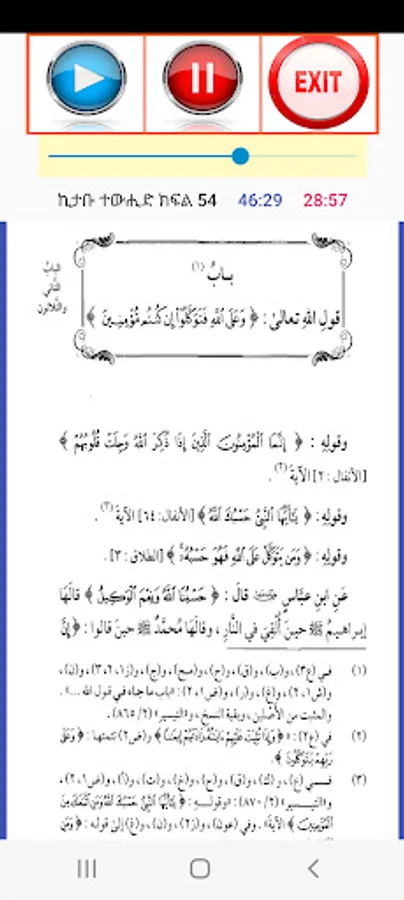 EXIT
ኪታቡ ተውሒድ ክፍል 54 46:29 28:57
الباب
الثاني
والثلاثون
بابُ (١)
قولِ اللهِ تعالىٰ: ﴿ وَعَلَى ٱللَّهِ فَتَوَكَّلُوٓا۟ إِن كُنتُم مُّؤْمِنِينَ ﴾
وقولِهِ: ﴿ إِنَّمَا ٱلْمُؤْمِنُونَ ٱلَّذِينَ إِذَا ذُكِرَ ٱللَّهُ وَجِلَتْ قُلُوبُهُمْ ﴾
[الأنفال: ٢] الآيةَ (٢).
وقولِهِ: ﴿ يَٰٓأَيُّهَا ٱلنَّبِىُّ حَسْبُكَ ٱللَّهُ ﴾ [الأنفال: ٦٤] الآيةَ (٣).
وقولِهِ: ﴿ وَمَن يَتَوَكَّلْ عَلَى ٱللَّهِ فَهُوَ حَسْبُهُۥٓ ﴾ [الطلاق: ٣].
عَنِ ابنِ عبَّاسٍ قالَ: ﴿ حَسْبُنَا ٱللَّهُ وَنِعْمَ ٱلْوَكِيلُ ﴾ قالَها
إبراهيمُ ﷺ حينَ أُلقِيَ في النَّارِ، وقالَها محمَّدٌ ﷺ حينَ قالوا: ﴿ إِنَّ
(١) في (ع٣)، و(ب)، و(ق)، و(ح)، و(ج)، و(ن)،
: «باب ما جاء في قول الله ...».
والمثبت من الأصلين، وبقية النسخ، و«التيسير» (٢/ ٨٦٥).
(٢) في (ع٢): تتمتها: ﴿ وَعَلَىٰ
رَبِّهِمْ يَتَوَكَّلُونَ ﴾.
(٣) في (ع)، و(ك)، و(ق)، و(ح)،
و«التيسير» (٢/ ٨٧٠): «وقوله: ﴿ يَٰٓأَيُّهَا ٱلنَّبِىُّ حَسْبُكَ ٱللَّهُ وَمَنِ ٱتَّبَعَكَ مِنَ
ٱلْمُؤْمِنِينَ ﴾ الآية». وفي (عون)، و(ز٢)، و(ن)، إلىٰ قوله: ﴿ وَمَن